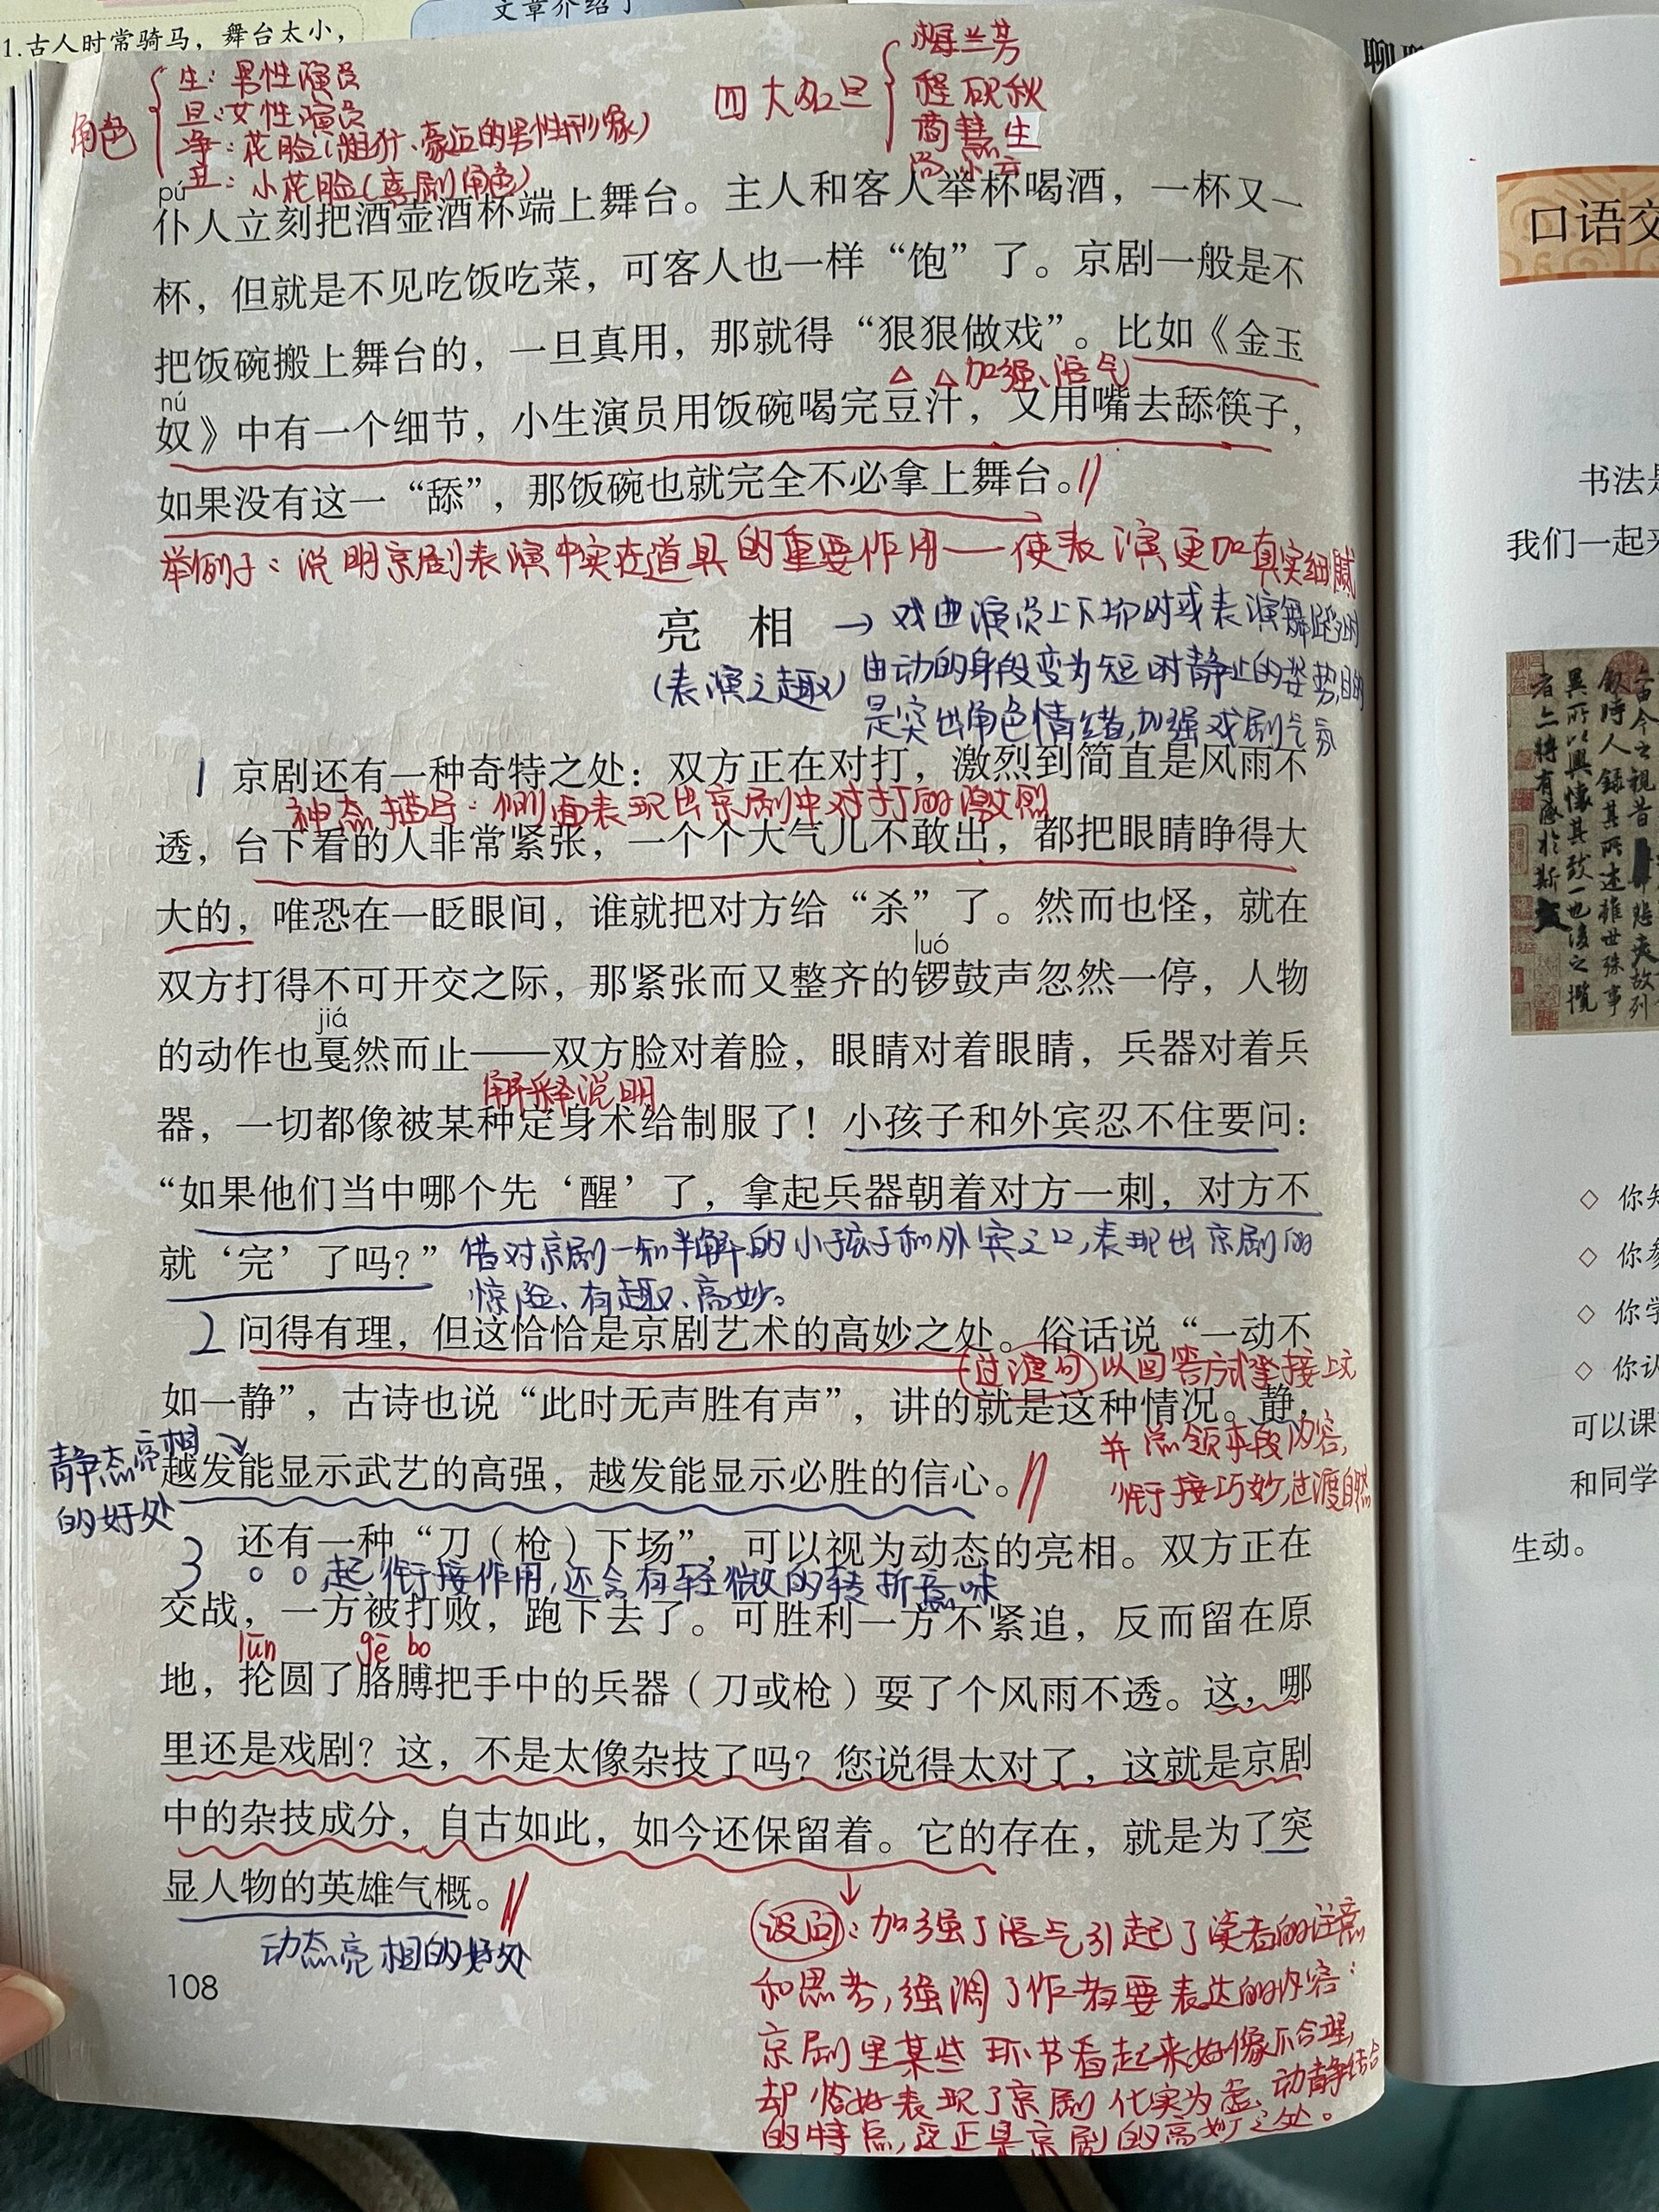 文章介绍了
1.古人时常骑马，舞台太小，
角色
生：男性演员
旦：女性演员
净：花脸（粗犷、豪迈的男性形象）
丑：小花脸（喜剧角色）
四大名旦
梅兰芳
程砚秋
荀慧生
尚小云
pú
仆人立刻把酒壶酒杯端上舞台。主人和客人举杯喝酒，一杯又一
杯，但就是不见吃饭吃菜，可客人也一样“饱”了。京剧一般是不
把饭碗搬上舞台的，一旦真用，那就得“狠狠做戏”。比如《金玉
加强语气
nú
奴》中有一个细节，小生演员用饭碗喝完豆汁，又用嘴去舔筷子，
如果没有这一“舔”，那饭碗也就完全不必拿上舞台。
举例子：说明京剧表演中实在道具的重要作用——使表演更加真实细腻
亮 相
→戏曲演员上下场时或表演舞蹈时
（表演之趣）
由动的身段变为短时静止的姿势，目的
是突出角色情绪，加强戏剧气氛
1 京剧还有一种奇特之处：双方正在对打，激烈到简直是风雨不
神态描写：侧面表现出京剧中对打的激烈
透，台下看的人非常紧张，一个个大气儿不敢出，都把眼睛睁得大
大的，唯恐在一眨眼间，谁就把对方给“杀”了。然而也怪，就在
luó
双方打得不可开交之际，那紧张而又整齐的锣鼓声忽然一停，人物
jiá
的动作也戛然而止——双方脸对着脸，眼睛对着眼睛，兵器对着兵
解释说明
器，一切都像被某种定身术给制服了！小孩子和外宾忍不住要问：
“如果他们当中哪个先‘醒’了，拿起兵器朝着对方一刺，对方不
就‘完’了吗？”
借对京剧一知半解的小孩子和外宾之口，表现出京剧的
惊险、有趣、高妙。
2 问得有理，但这恰恰是京剧艺术的高妙之处。俗话说“一动不
过渡句 以回答方式承接上文
如一静”，古诗也说“此时无声胜有声”，讲的就是这种情况。静，
并总领本段内容，
静态亮相
的好处
越发能显示武艺的高强，越发能显示必胜的信心。
衔接巧妙，过渡自然
3 还有一种“刀（枪）下场”，可以视为动态的亮相。双方正在
起衔接作用，还含有轻微的转折意味
交战，一方被打败，跑下去了。可胜利一方不紧追，反而留在原
lūn gē bo
地，抡圆了胳膊把手中的兵器（刀或枪）耍了个风雨不透。这，哪
里还是戏剧？这，不是太像杂技了吗？您说得太对了，这就是京剧
中的杂技成分，自古如此，如今还保留着。它的存在，就是为了突
显人物的英雄气概。
动态亮相的好处
设问：加强了语气引起了读者的注意
和思考，强调了作者要表达的内容：
京剧里某些环节看起来好像不合理，
却恰好表现了京剧化实为虚、动静结合
的特点，这正是京剧的高妙之处。
108
口语交
书法是
我们一起来
◇ 你知
◇ 你参
◇ 你学
◇ 你认
可以课
和同学
生动。